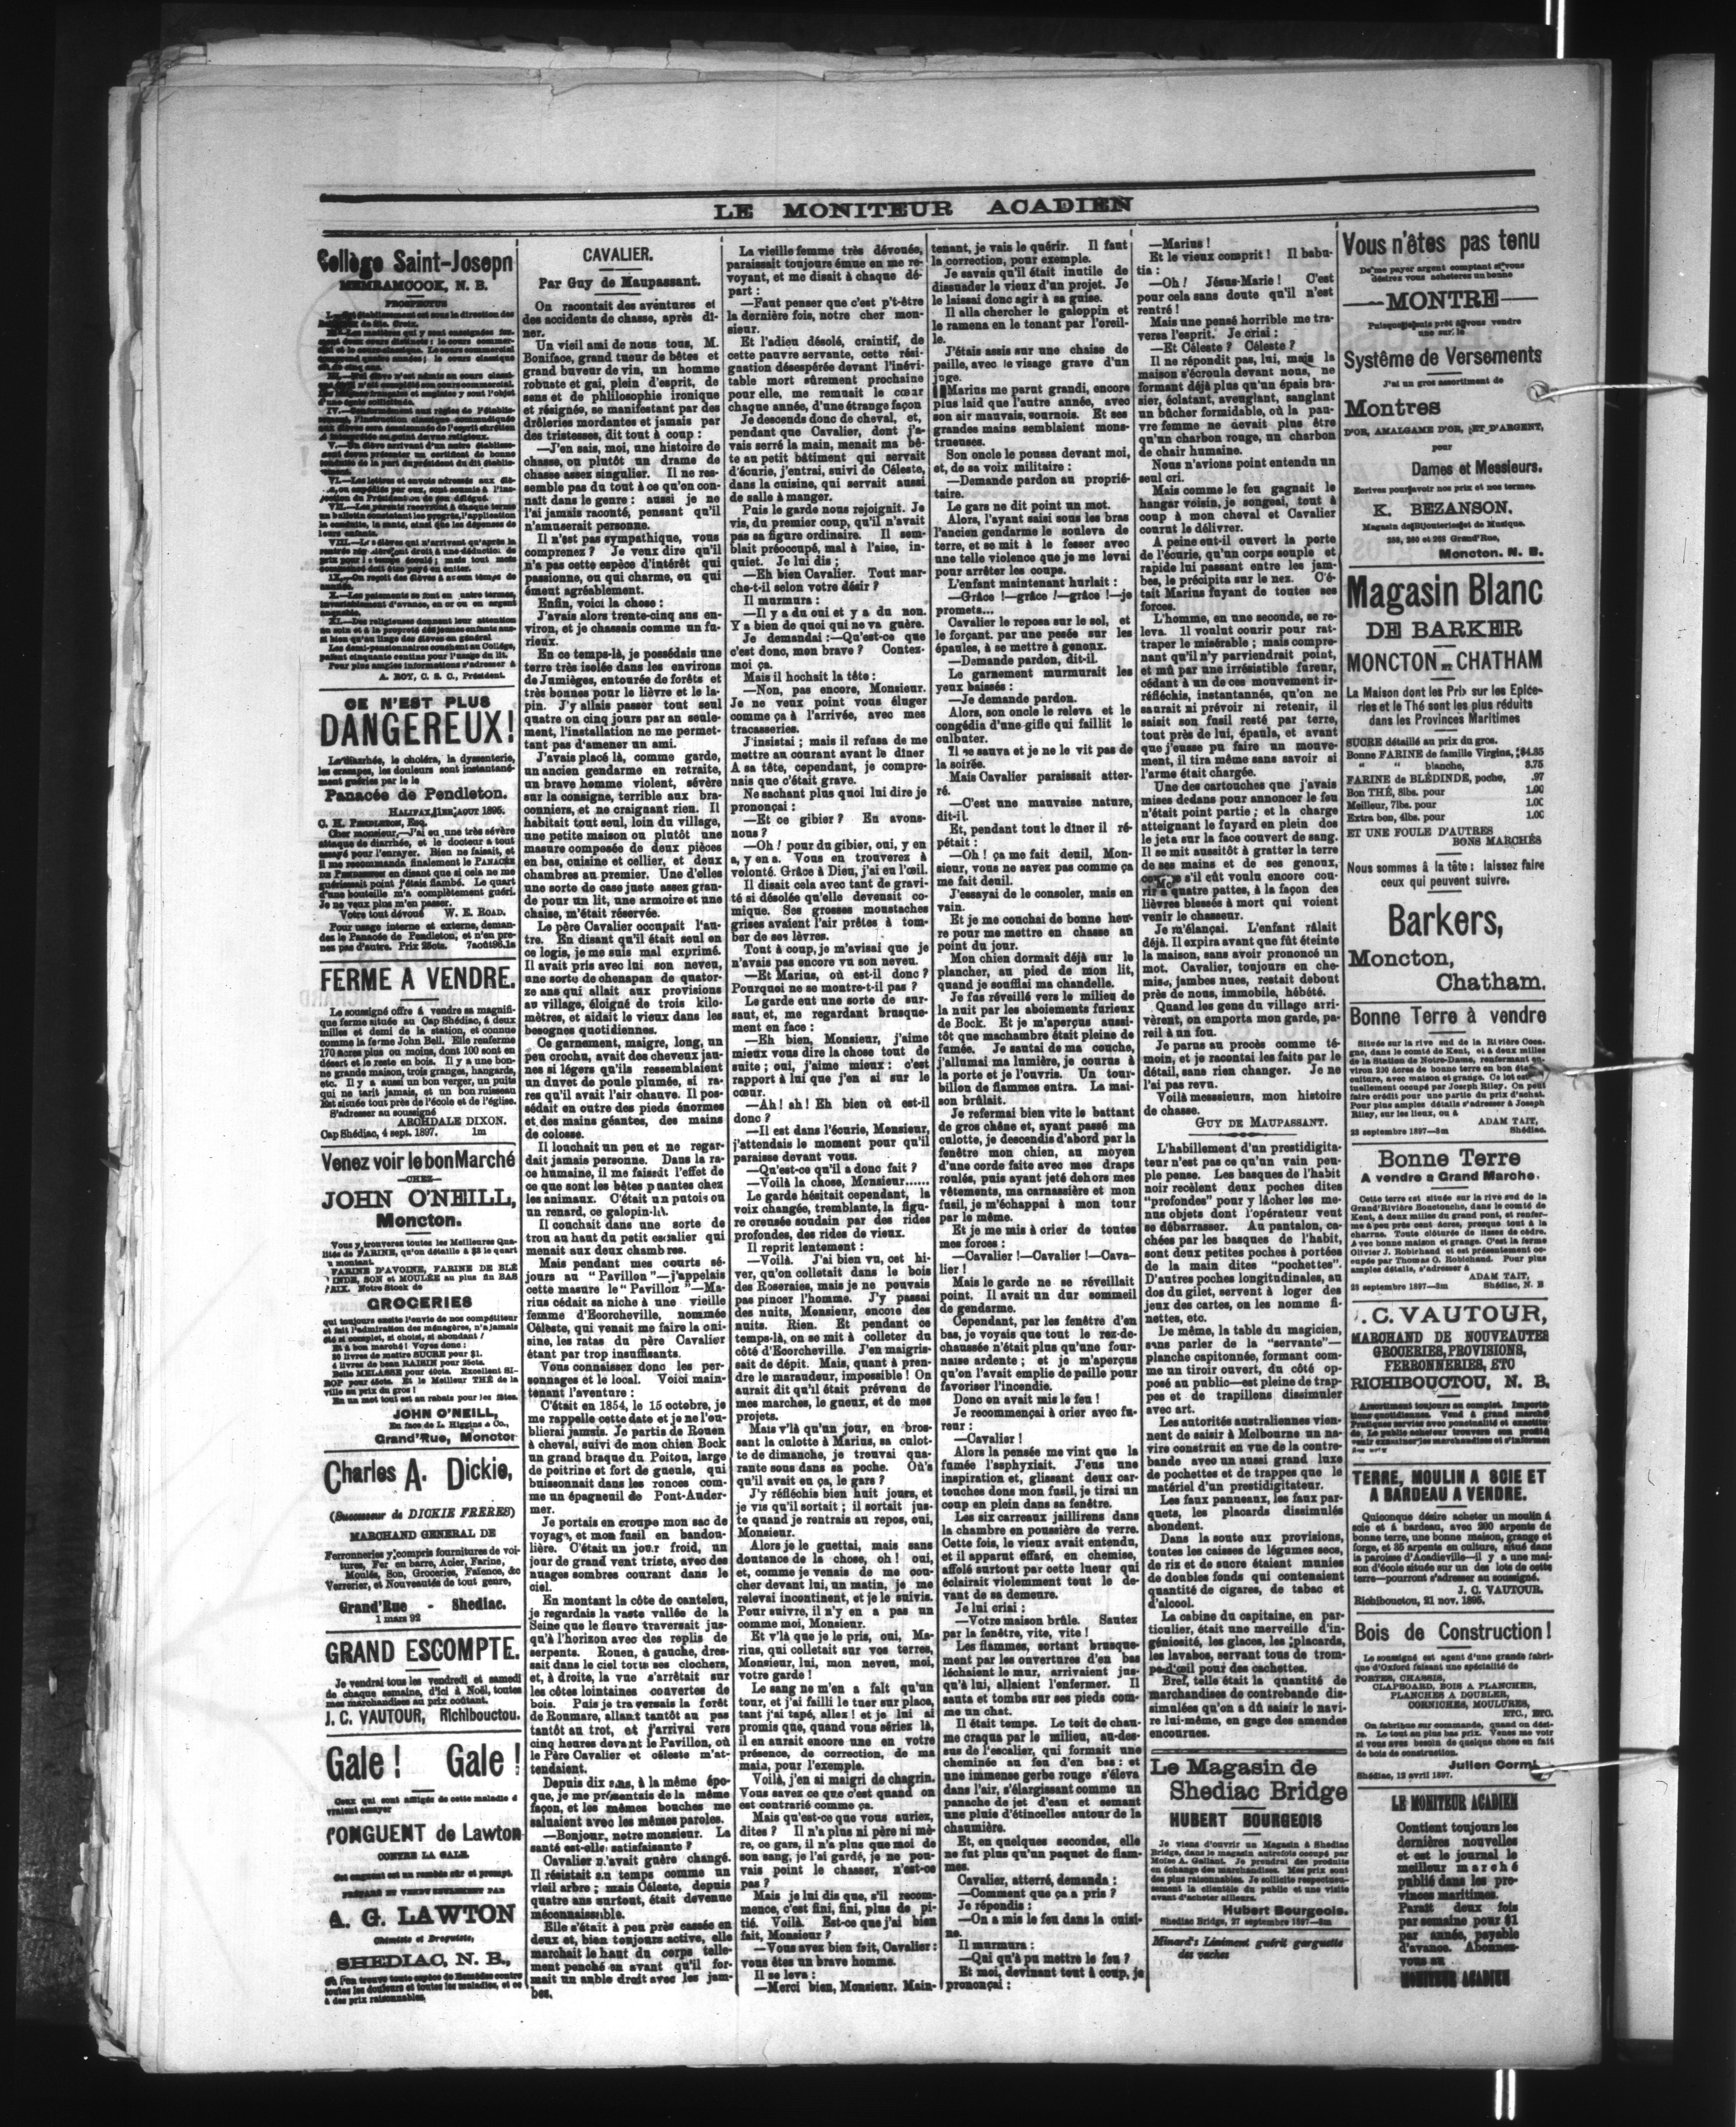 LE MONITEUR ACADIEN
Collège Saint-Joseph
MEMRAMCOOK, N. B.
PROSPECTUS
A. ROY, C. S. C., Président.
CE N'EST PLUS
DANGEREUX!
La diarrhée, le choléra, la dyssenterie,
les crampes, les douleurs sont instantané-
ment guéries par le le
Panacée de Pendleton.
HALIFAX, 1er août 1895.
C. H. PENDLETON, Esq.
Cher monsieur,—J'ai eu une très sévère
attaque de diarrhée, et le docteur a tout
essayé pour l'enrayer. Rien ne faisait, et
il me recommanda finalement le PANACÉE
DE PENDLETON en disant que si cela ne me
guérissait point j'étais flambé. Le quart
d'une bouteille m'a complètement guéri.
Je ne veux plus m'en passer.
Votre tout dévoué W. E. ROAD.
Pour usage interne et externe, deman-
dez le Panacée de Pendleton, et n'en pre-
nez pas d'autre. Prix 25cts. 7août96.1a
FERME A VENDRE.
Le soussigné offre à vendre sa magnifi-
que ferme située au Cap Shédiac, à deux
milles et demi de la station, et connue
comme la ferme John Bell. Elle renferme
170 âcres plus ou moins, dont 100 sont en
désert et le reste en bois. Il y a une bon-
ne grande maison, trois granges, hangards,
etc. Il y a aussi un bon verger, un puits
qui ne tarit jamais, et un bon ruisseau
Est située tout près de l'école et de l'église.
S'adresser au soussigné
ARCHDALE DIXON.
Cap Shédiac, 4 sept. 1897. 1m
Venez voir le bon Marché
—CHEZ—
JOHN O'NEILL,
Moncton.
Vous y trouverez toutes les Meilleures Qua-
lités de FARINE, qu'on détaille à $3 le quart
GROCERIES
qui toujours excite l'envie de nos compétiteur
et fait l'admiration des ménagères, n'a jamais
été si complet, si choisi, si abondant !
Et à bon marché ! Voyez donc :
JOHN O'NEILL,
En face de L. Higgins & Co.,
Grand'Rue, Moncton
Charles A. Dickie,
(Successeur de DICKIE FRERES)
MARCHAND GENERAL DE
Ferronneries y compris fournitures de voi-
tures, Fer en barre, Acier, Farine,
Moulée, Son, Groceries, Faïence, &c
Verrerier, et Nouveautés de tout genre,
Grand'Rue - Shediac.
1 mars 92
GRAND ESCOMPTE.
Je vendrai tous les vendredi et samedi
de chaque semaine, d'ici à Noël, toutes
mes marchandises au prix coûtant.
J. C. VAUTOUR, Richibouctou.
Gale ! Gale !
Ceux qui sont affligés de cette maladie d
vraient essayer
l'ONGUENT de Lawton
CONTRE LA GALE
Cet onguent est un remède sûr et prompt.
PRÉPARÉ ET VENDU SEULEMENT PAR
A. G. LAWTON
Chimiste et Droguiste,
SHEDIAC, N. B.,
CAVALIER.
Par Guy de Maupassant.
On racontait des aventures et
des accidents de chasse, après dî-
ner.
Un vieil ami de nous tous, M.
Boniface, grand tueur de bêtes et
grand buveur de vin, un homme
robuste et gai, plein d'esprit, de
sens et de philosophie ironique
et résignée, se manifestant par des
drôleries mordantes et jamais par
des tristesses, dit tout à coup :
—J'en sais, moi, une histoire de
chasse, ou plutôt un drame de
chasse assez singulier. Il ne res-
semble pas du tout à ce qu'on con-
naît dans le genre : aussi je ne
l'ai jamais raconté, pensant qu'il
n'amuserait personne.
Il n'est pas sympathique, vous
comprenez ? Je veux dire qu'il
n'a pas cette espèce d'intérêt qui
passionne, ou qui charme, ou qui
émeut agréablement.
Enfin, voici la chose :
J'avais alors trente-cinq ans en-
viron, et je chassais comme un fu-
rieux.
En ce temps-là, je possédais une
terre très isolée dans les environs
de Jumièges, entourée de forêts et
très bonnes pour le lièvre et le la-
pin. J'y allais passer tout seul
quatre ou cinq jours par an seule-
ment, l'installation ne me permet-
tant pas d'amener un ami.
J'avais placé là, comme garde,
un ancien gendarme en retraite,
un brave homme violent, sévère
sur la consigne, terrible aux bra-
conniers, et ne craignant rien. Il
habitait tout seul, loin du village,
une petite maison ou plutôt une
masure composée de deux pièces
en bas, cuisine et cellier, et deux
chambres au premier. Une d'elles
une sorte de case juste assez gran-
de pour un lit, une armoire et une
chaise, m'était réservée.
Le père Cavalier occupait l'au-
tre. En disant qu'il était seul en
ce logis, je me suis mal exprimé.
Il avait pris avec lui son neveu,
une sorte de chenapan de quator-
ze ans qui allait aux provisions
au village, éloigné de trois kilo-
mètres, et aidait le vieux dans les
besognes quotidiennes.
Ce garnement, maigre, long, un
peu crochu, avait des cheveux jau-
nes si légers qu'ils ressemblaient
un duvet de poule plumée, si ra-
res qu'il avait l'air chauve. Il pos-
sédait en outre des pieds énormes
et des mains géantes, des mains
de colosse.
Il louchait un peu et ne regar-
dait jamais personne. Dans la ra-
ce humaine, il me faisait l'effet de
ce que sont les bêtes puantes chez
les animaux. C'était un putois ou
un renard, ce galopin-là.
Il couchait dans une sorte de
trou au haut du petit escalier qui
menait aux deux chambres.
Mais pendant mes courts sé-
jours au "Pavillon"—j'appelais
cette masure le "Pavillon"—Ma-
rius cédait sa niche à une vieille
femme d'Ecorcheville, nommée
Céleste, qui venait me faire la cui-
sine, les ratas du père Cavalier
étant par trop insuffisants.
Vous connaissez donc les per-
sonnages et le local. Voici main-
tenant l'aventure :
C'était en 1854, le 15 octobre, je
me rappelle cette date et je ne l'ou-
blierai jamais. Je partis de Rouen
à cheval, suivi de mon chien Bock
un grand braque du Poitou, large
de poitrine et fort de gueule, qui
buissonnait dans les ronces com-
me un épagneuil de Pont-Auder-
mer.
Je portais en croupe mon sac de
voyage, et mon fusil en bandou-
lière. C'était un jour froid, un
jour de grand vent triste, avec des
nuages sombres courant dans le
ciel.
En montant la côte de canteleu,
je regardais la vaste vallée de la
Seine que le fleuve traversait jus-
qu'à l'horizon avec des replis de
serpents. Rouen, à gauche, dres-
sait dans le ciel tous ses clochers,
et, à droite, la vue s'arrêtait sur
les côtes lointaines couvertes de
bois. Puis je traversais la forêt
de Roumare, allant tantôt au pas
tantôt au trot, et j'arrivai vers
cinq heures devant le Pavillon, où
le Père Cavalier et céleste m'at-
tendaient.
Depuis dix ans, à la même épo-
que, je me présentais de la même
façon, et les mêmes bouches me
saluaient avec les mêmes paroles.
—Bonjour, notre monsieur. La
santé est-elle satisfaisante ?
Cavalier n'avait guère changé.
Il résistait au temps comme un
vieil arbre ; mais Céleste, depuis
quatre ans surtout, était devenue
méconnaissable.
Elle s'était à peu près cassée en
deux et, bien toujours active, elle
marchait le haut du corps telle-
ment penché en avant qu'il for-
mait un angle droit avec les jam-
bes.
La vieille femme très dévouée,
paraissait toujours émue en me re-
voyant, et me disait à chaque dé-
part :
—Faut penser que c'est p't-être
la dernière fois, notre cher mon-
sieur.
Et l'adieu désolé, craintif, de
cette pauvre servante, cette rési-
gnation désespérée devant l'inévi-
table mort sûrement prochaine
pour elle, me remuait le cœur
chaque année, d'une étrange façon
Je descends donc de cheval, et,
pendant que Cavalier, dont j'a-
vais serré la main, menait ma bê-
te au petit bâtiment qui servait
d'écurie, j'entrai, suivi de Céleste,
dans la cuisine, qui servait aussi
de salle à manger.
Puis le garde nous rejoignit. Je
vis, du premier coup, qu'il n'avait
pas sa figure ordinaire. Il sem-
blait préoccupé, mal à l'aise, in-
quiet. Je lui dis ;
—Eh bien Cavalier. Tout mar-
che-t-il selon votre désir ?
Il murmura :
—Il y a du oui et y a du non.
Y a bien de quoi qui ne va guère.
Je demandai :—Qu'est-ce que
c'est donc, mon brave ? Contez-
moi ça.
Mais il hochait la tête :
—Non, pas encore, Monsieur.
Je ne veux point vous éluger
comme ça à l'arrivée, avec mes
tracasseries.
J'insistai ; mais il refusa de me
mettre au courant avant le dîner
A sa tête, cependant, je compre-
nais que c'était grave.
Ne sachant plus quoi lui dire je
prononçai :
—Et ce gibier ? En avons-
nous ?
—Oh ! pour du gibier, oui, y en
a, y en a. Vous en trouverez à
volonté. Grâce à Dieu, j'ai eu l'œil.
Il disait cela avec tant de gravi-
té si désolée qu'elle devenait co-
mique. Ses grosses moustaches
grises avaient l'air prêtes à tom-
ber de ses lèvres.
Tout à coup, je m'avisai que je
n'avais pas encore vu son neveu.
—Et Marius, où est-il donc ?
Pourquoi ne se montre-t-il pas ?
Le garde eut une sorte de sur-
saut, et, me regardant brusque-
ment en face :
—Eh bien, Monsieur, j'aime
mieux vous dire la chose tout de
suite ; oui, j'aime mieux : c'est
rapport à lui que j'en ai sur le
cœur.
—Ah ! ah ! Eh bien où est-il
donc ?
—Il est dans l'écurie, Monsieur,
j'attendais le moment pour qu'il
paraisse devant vous.
—Qu'est-ce qu'il a donc fait ?
—Voilà la chose, Monsieur......
Le garde hésitait cependant, la
voix changée, tremblante, la figu-
re creusée soudain par des rides
profondes, des rides de vieux.
Il reprit lentement :
—Voilà. J'ai bien vu, cet hi-
ver, qu'on colletait dans le bois
des Roseraies, mais je ne pouvais
pas pincer l'homme. J'y passai
des nuits, Monsieur, encore des
nuits. Rien. Et pendant ce
temps-là, on se mit à colleter du
côté d'Ecorcheville. J'en maigris-
sait de dépit. Mais, quant à pren-
dre le maraudeur, impossible ! On
aurait dit qu'il était prévenu de
mes marches, le gueux, et de mes
projets.
Mais v'là qu'un jour, en bros-
sant la culotte à Marius, sa culot-
te de dimanche, je trouvai qua-
rante sous dans sa poche. Où's
qu'il avait eu ça, le gars ?
J'y réfléchis bien huit jours, et
je vis qu'il sortait ; il sortait jus-
te quand je rentrais au repos, oui,
Monsieur.
Alors je le guettai, mais sans
doutance de la chose, oh ! oui,
et, comme je venais de me cou-
cher devant lui, un matin, je me
relevai incontinent, et je le suivis.
Pour suivre, il n'y en a pas un
comme moi, Monsieur.
Et v'là que je le pris, oui, Ma-
rius, qui colletait sur vos terres,
Monsieur, lui, mon neveu, moi,
votre garde !
Le sang ne m'en a fait qu'un
tour, et j'ai failli le tuer sur place,
tant j'ai tapé, allez ! et je lui ai
promis que, quand vous sériez là,
il en aurait encore une en votre
présence, de correction, de ma
main, pour l'exemple.
Voilà, j'en ai maigri de chagrin.
Vous savez ce que c'est quand on
est contrarié comme ça.
Mais qu'est-ce que vous auriez,
dites ? Il n'a plus ni père ni mè-
re, ce gars, il n'a plus que moi de
son sang, je l'ai gardé, je ne pou-
vais point le chasser, n'est-ce
pas ?
Mais je lui dis que, s'il recom-
mence, c'est fini, fini, plus de pi-
tié. Voilà. Est-ce que j'ai bien
fait, Monsieur ?
—Vous avez bien fait, Cavalier :
vous êtes un brave homme.
Il se leva :
—Merci bien, Monsieur. Main-
tenant, je vais le quérir. Il faut
la correction, pour exemple.
Je savais qu'il était inutile de
dissuader le vieux d'un projet. Je
le laissai donc agir à sa guise.
Il alla chercher le galoppin et
le ramena en le tenant par l'oreil-
le.
J'étais assis sur une chaise de
paille, avec le visage grave d'un
juge.
Marius me parut grandi, encore
plus laid que l'autre année, avec
son air mauvais, sournois. Et ses
grandes mains semblaient mons-
trueuses.
Son oncle le poussa devant moi,
et, de sa voix militaire :
—Demande pardon au proprié-
taire.
Le gars ne dit point un mot.
Alors, l'ayant saisi sous les bras
l'ancien gendarme le souleva de
terre, et se mit à le fesser avec
une telle violence que je me levai
pour arrêter les coups.
L'enfant maintenant hurlait :
—Grâce !—grâce !—grâce !—je
promets...
Cavalier le reposa sur le sol, et
le forçant. par une pesée sur les
épaules, à se mettre à genoux.
—Demande pardon, dit-il.
Le garnement murmurait les
yeux baissés :
—Je demande pardon.
Alors, son oncle le releva et le
congédia d'une gifle qui faillit le
culbuter.
Il se sauva et je ne le vit pas de
la soirée.
Mais Cavalier paraissait atter-
ré.
—C'est une mauvaise nature,
dit-il.
Et, pendant tout le dîner il ré-
pétait :
—Oh ! ça me fait deuil, Mon-
sieur, vous ne savez pas comme ça
me fait deuil.
J'essayai de le consoler, mais en
vain.
Et je me couchai de bonne heu-
re pour me mettre en chasse au
point du jour.
Mon chien dormait déjà sur le
plancher, au pied de mon lit,
quand je soufflai ma chandelle.
Je fus réveillé vers le milieu de
la nuit par les aboiements furieux
de Bock. Et je m'aperçus aussi-
tôt que machambre était pleine de
fumée. Je sautai de ma couche,
j'allumai ma lumière, je courus à
la porte et je l'ouvris. Un tour-
billon de flammes entra. La mai-
son brûlait.
Je refermai bien vite le battant
de gros chêne et, ayant passé ma
culotte, je descendis d'abord par la
fenêtre mon chien, au moyen
d'une corde faite avec mes draps
roulés, puis ayant jeté dehors mes
vêtements, ma carnassière et mon
fusil, je m'échappai à mon tour
par le même.
Et je me mis à crier de toutes
mes forces :
—Cavalier !—Cavalier !—Cava-
lier !
Mais le garde ne se réveillait
point. Il avait un dur sommeil
de gendarme.
Cependant, par les fenêtre d'en
bas, je voyais que tout le rez-de-
chaussée n'était plus qu'une four-
naise ardente ; et je m'aperçus
qu'on l'avait emplie de paille pour
favoriser l'incendie.
Donc on avait mis le feu !
Je recommençai à crier avec fu-
reur :
—Cavalier !
Alors la pensée me vint que la
fumée l'asphyxiait. J'eus une
inspiration et, glissant deux car-
touches dons mon fusil, je tirai un
coup en plein dans sa fenêtre.
Les six carreaux jaillirens dans
la chambre en poussière de verre.
Cette fois, le vieux avait entendu,
et il apparut effaré, en chemise,
affolé surtout par cette lueur qui
éclairait violemment tout le de-
vant de sa demeure.
Je lui criai :
—Votre maison brûle. Sautez
par la fenêtre, vite, vite !
Les flammes, sortant brusque-
ment par les ouvertures d'en bas
léchaient le mur, arrivaient jus-
qu'à lui, allaient l'enfermer. Il
sauta et tomba sur ses pieds com-
me un chat.
Il était temps. Le toit de chau-
me craqua par le milieu, au-des-
sus de l'escalier, qui formait une
cheminée au feu d'en bas : et
une immense gerbe rouge s'éleva
dans l'air, s'élargissant comme un
panache de jet d'eau et semant
une pluie d'étincelles autour de la
chaumière.
Et, en quelques secondes, elle
ne fut plus qu'un paquet de flam-
mes.
Cavalier, atterré, demanda :
—Comment que ça a pris ?
Je répondis :
—On a mis le feu dans la cuisi-
ne.
Il murmura :
—Qui qu'à pu mettre le feu ?
Et moi, devinant tout à coup, je
prononçai :
—Marius !
Et le vieux comprit ! Il babu-
tia :
—Oh ! Jésus-Marie ! C'est
pour cela sans doute qu'il n'est
rentré !
Mais une pensé horrible me tra-
versa l'esprit. Je criai :
—Et Céleste ? Céleste ?
Il ne répondit pas, lui, mais la
maison s'écroula devant nous, ne
formant déjà plus qu'un épais bra-
sier, éclatant, aveuglant, sanglant
un bûcher formidable, où la pau-
vre femme ne devait plus être
qu'un charbon rouge, un charbon
de chair humaine.
Nous n'avions point entendu un
seul cri.
Mais comme le feu gagnait le
hangar voisin, je songeai, tout à
coup à mon cheval et Cavalier
courut le délivrer.
A peine eut-il ouvert la porte
de l'écurie, qu'un corps souple et
rapide lui passant entre les jam-
bes, le précipita sur le nez. C'é-
tait Marius fuyant de toutes ses
forces.
L'homme, en une seconde, se re-
leva. Il voulut courir pour rat-
traper le misérable ; mais compre-
nant qu'il n'y parviendrait point,
et mû par une irrésistible fureur,
cédant à un de ces mouvement ir-
réfléchis, instantannés, qu'on ne
saurait ni prévoir ni retenir, il
saisit son fusil resté par terre,
tout près de lui, épaula, et avant
que j'eusse pu faire un mouve-
ment, il tira même sans savoir si
l'arme était chargée.
Une des cartouches que j'avais
mises dedans pour annoncer le feu
n'était point partie ; et la charge
atteignant le fuyard en plein dos
le jeta sur la face couvert de sang.
Il se mit aussitôt à gratter la terre
de ses mains et de ses genoux,
s'il eût voulu encore cou-
rir à quatre pattes, à la façon des
lièvres blessés à mort qui voient
venir le chasseur.
Je m'élançai. L'enfant râlait
déjà. Il expira avant que fût éteinte
la maison, sans avoir prononcé un
mot. Cavalier, toujours en che-
mise, jambes nues, restait debout
près de nous, immobile, hébété.
Quand les gens du village arri-
vèrent, on emporta mon garde, pa-
reil à un fou.
Je parus au procès comme té-
moin, et je racontai les faits par le
détail, sans rien changer. Je ne
l'ai pas revu.
Voilà messsieurs, mon histoire
de chasse.
GUY DE MAUPASSANT.
L'habillement d'un prestidigita-
teur n'est pas ce qu'un vain peu-
ple pense. Les basques de l'habit
noir recèlent deux poches dites
"profondes" pour y lâcher les me-
nus objets dont l'opérateur veut
se débarrasser. Au pantalon, ca-
chées par les basques de l'habit,
sont deux petites poches à portées
de la main dites "pochettes".
D'autres poches longitudinales, au
dos du gilet, servent à loger des
jeux des cartes, on les nomme fi-
nettes, etc.
De même, la table du magicien,
sans parler de la "servante"—
planche capitonnée, formant com-
me un tiroir ouvert, du côté op-
posé au public—est pleine de trap-
pes et de trapillons dissimuler
avec art.
Les autorités australiennes vien-
nent de saisir à Melbourne un na-
vire construit en vue de la contre-
bande avec un aussi grand luxe
de pochettes et de trappes que le
matériel d'un prestidigitateur.
Les faux panneaux, les faux par-
quets, les placards dissimulés
abondent.
Dans la soute aux provisions,
toutes les caisses de légumes secs,
de riz et de sucre étaient munies
de doubles fonds qui contenaient
quantité de cigares, de tabac et
d'alcool.
La cabine du capitaine, en par-
ticulier, était une merveille d'in-
géniosité, les glaces, les placards,
les lavabos, servant tous de trom-
pe-d'œil pour des cachettes.
Bref, telle était la quantité de
marchandises de contrebande dis-
simulées qu'on a dû saisir le navi-
re lui-même, en gage des amendes
encourues.
Le Magasin de
Shediac Bridge
HUBERT BOURGEOIS
Je viens d'ouvrir un Magasin à Shediac
Bridge, dans le magasin autrefois occupé par
Moïse A. Gallant. Je prendrai des produits
en échange des marchandises. Mes prix sont
des plus raisonnables. Je sollicite respectueu-
sement la clientèle du public et une visite
avant d'acheter ailleurs.
Hubert Bourgeois.
Shediac Bridge, 27 septembre 1897—3m
Minard's Liniment guérit garguette
des vaches
Vous n'êtes pas tenu
De me payer argent comptant si vous
désirez vous acheterez un bonne
—MONTRE—
Puisque je suis prêt à vous vendre
une sur le
Système de Versements
J'ai un gros assortiment de
Montres
D'OR, AMALGAME D'OR, ET D'ARGENT,
pour
Dames et Messieurs.
Ecrivez pour avoir nos prix et nos termes.
K. BEZANSON.
Magasin de Bijouteries et de Musique.
Moncton. N. B.
Magasin Blanc
DE BARKER
MONCTON ET CHATHAM
La Maison dont les Prix sur les Epice-
ries et le Thé sont les plus réduits
dans les Provinces Maritimes
SUCRE détaillé au prix du gros.
Bonne FARINE de famille Virgins, $4.85
" " blanche, 3.75
FARINE de BLÉDINDE, poche, .97
Bon THÉ, 8lbs. pour 1.00
Meilleur, 7lbs. pour 1.00
Extra bon, 4lbs. pour 1.00
ET UNE FOULE D'AUTRES
BONS MARCHÉS
Nous sommes à la tête : laissez faire
ceux qui peuvent suivre.
Barkers,
Moncton,
Chatham.
Bonne Terre à vendre
Située sur la rive sud de la Rivière Coca-
gne, dans le comté de Kent, et à deux milles
de la Station de Notre-Dame, renfermant en-
viron 200 âcres de bonne terre en bon état
culture, avec maison et grange. Ce lot est
tuellement occupé par Joseph Riley. On peut
faire crédit pour une partie du prix d'achat.
Pour plus amples détails s'adresser à Joseph
Riley, sur les lieux, ou à
ADAM TAIT,
23 septembre 1897—3m Shédiac.
Bonne Terre
A vendre a Grand Marche.
Cette terre est située sur la rive sud de la
Grand'Rivière Bouctouche, dans le comté de
Kent, à deux milles du grand pont, et renfer-
me à peu près cent âcres, presque tout à la
charrue. Toute clôturée de lisses de cèdre.
Avec bonne maison et grange. C'est la ferme
Olivier J. Robichaud et est présentement oc-
cupée par Thomas O. Robichaud. Pour plus
amples détails, s'adresser à
ADAM TAIT,
23 septembre 1897—3m Shédiac, N. B
. C. VAUTOUR,
MARCHAND DE NOUVEAUTES
GROCERIES, PROVISIONS,
FERRONNERIES, ETC
RICHIBOUCTOU, N. B.
TERRE, MOULIN A SCIE ET
A BARDEAU A VENDRE.
Quiconque désire acheter un moulin à
scie et à bardeau, avec 200 arpents de
bonne terre, une bonne maison, grange et
forge, et 35 arpents en culture, situé dans
la paroisse d'Acadieville—il y a une mai-
son d'école située sur un des lots de cette
terre—pourront s'adresser au soussigné.
J. C. VAUTOUR.
Richibouctou, 21 nov. 1895.
Bois de Construction !
Le soussigné est agent d'une grande fabri-
que d'Oxford faisant une spécialité de
PORTES, CHASSIS,
CLAPBOARD, BOIS A PLANCHER,
PLANCHES A DOUBLER,
CORNICHES, MOULURES,
ETC., ETC.
On fabrique sur commande, quand on dési-
re. Le tout au plus bas prix. Venez me voir
si vous avez besoin de quelque chose en fait
de bois de construction.
Julien Cormi
Shédiac, 12 avril 1897.
LE MONITEUR ACADIEN
Contient toujours les
dernières nouvelles
et est le journal le
meilleur marché
publié dans les pro-
vinces maritimes.
Parait deux fois
par semaine pour $1
par année, payable
d'avance. Abonnez-
vous au
MONITEUR ACADIEN